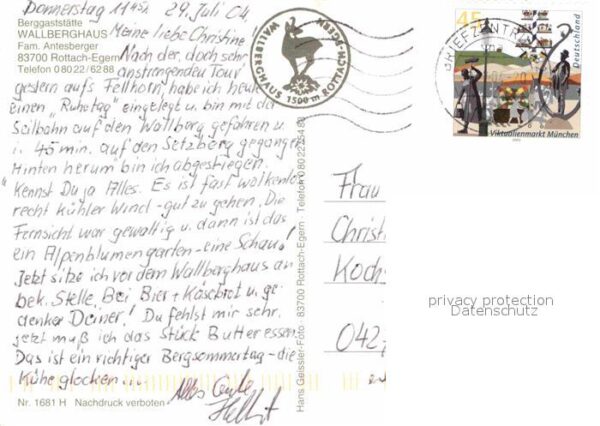 Donnerstag 11 45h 29. Juli 04
Berggaststätte
WALLBERGHAUS
Fam. Antesberger
83700 Rottach-Egern
Telefon 0 80 22/62 88
Meine liebe Christine
Nach der, doch sehr
anstrengenden Tour
gestern aufs Fellhorn, habe ich heute
einen "Ruhetag" eingelegt u. bin mit der
Seilbahn auf den Wallberg gefahren u.
i. 45 min. auf den Setzberg gegangen
Hinten herum bin ich abgestiegen.
Kennst Du ja Alles. Es ist fast wolkenlos
recht kühler Wind - gut zu gehen. Die
Fernsicht war gewaltig u. dann ist das
ein Alpenblumengarten - eine Schau!
Jetzt sitze ich vor dem Wallberghaus an
bek. Stelle, Bei Bier + Käsebrot u. ge-
denke Deiner! Du fehlst mir sehr,
jetzt muß ich das Stück Butter essen
Das ist ein richtiger Bergsommertag - die
Kuheglocken ...
Alles Gute
Nr. 1681 H Nachdruck verboten
WALLBERGHAUS 1500 m ROTTACH-EGERN
Hans Geissler-Foto · 83700 Rottach-Egern · Telefon 08022/2 54 88
BRIEFZENTRUM
45
Deutschland
Viktualienmarkt München
Frau
Christ
Koch
042
privacy protection
Datenschutz